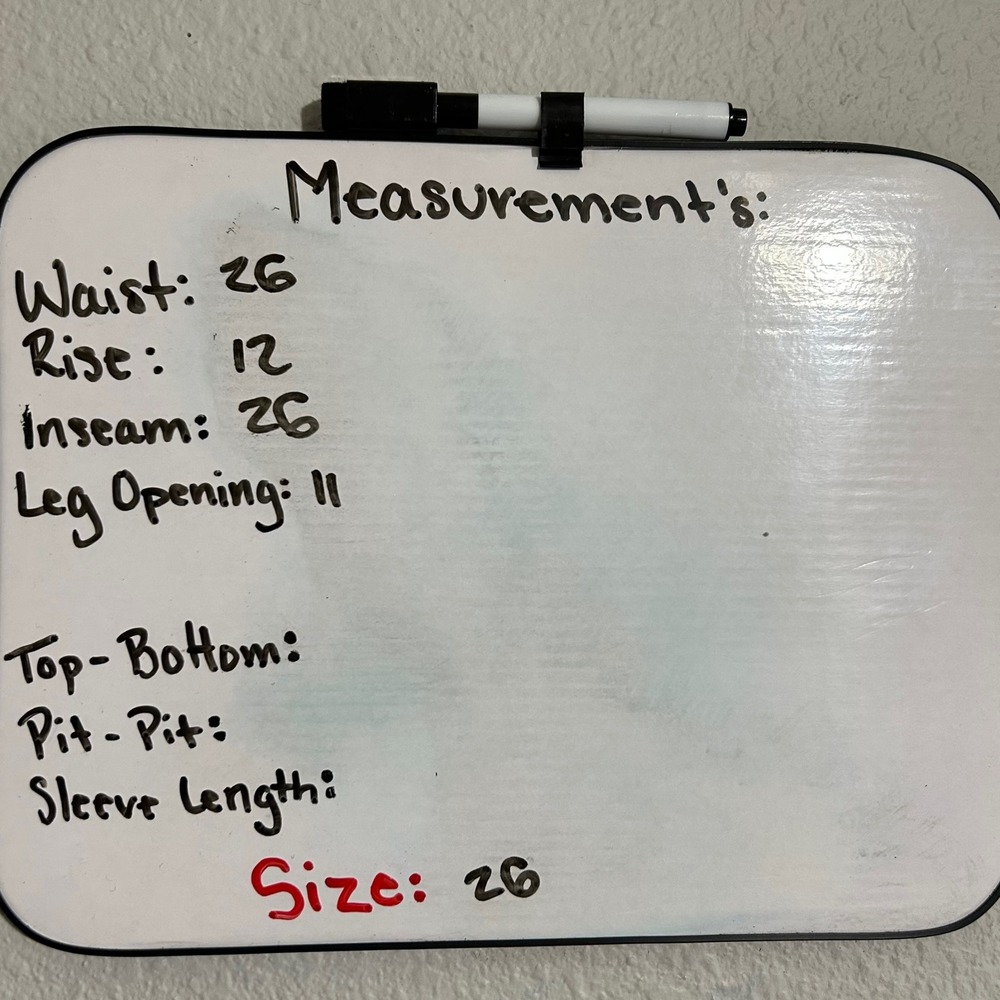 Measurement's:
Waist: 26
Rise: 12
Inseam: 26
Leg Opening: 11
Top-Bottom:
Pit-Pit:
Sleeve Length:
Size: 26